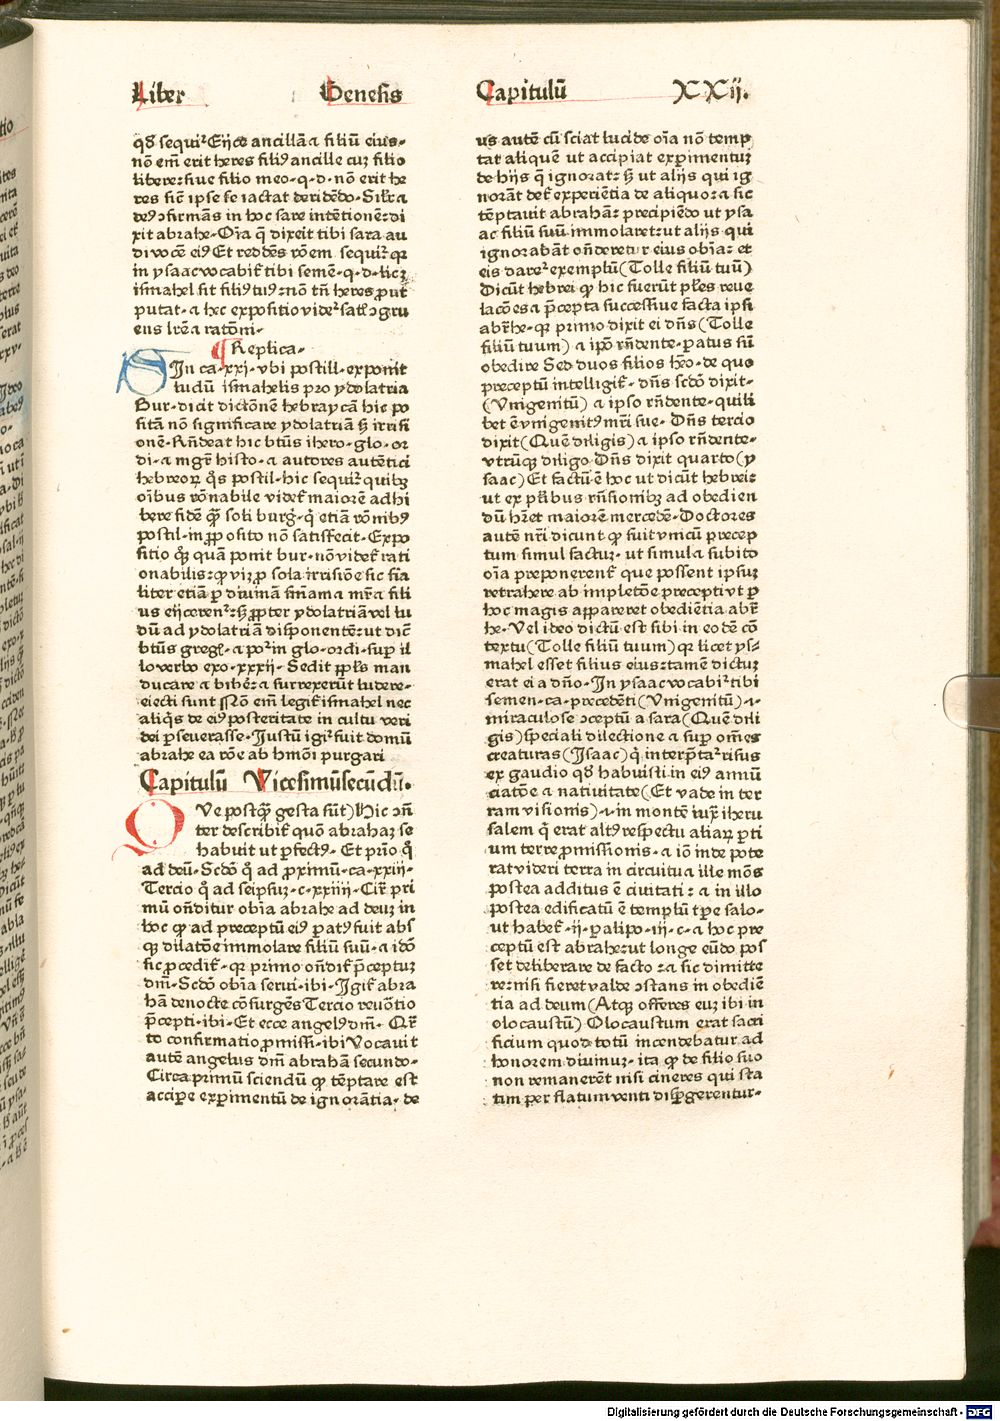 Liber Genesis
q8 sequiť Eijce ancillā ⁊ filiū eius·
nō em̄ erit heres filiꝰ ancille cuȝ filio
libere: siue filio meo·q·d·nō erit he
res sič ipse se iactat deridēdo·Silr̄ ⁊
deꝰ ↄfirmās in hoc sare intētionē: di
xit abrahe·Oīa q̄ dixeit tibi sara au
di vocē eiꝰ Et reddēs rōem sequiť qꝛ
in ysaac vocabiť tibi semē·q·d·licȝ
ismahel sit filiꝰ tuꝰ: nō tn̄ heres ꝓut
putat·⁊ hec expositio videť satꝭ ↄgru
ens lr̄e ⁊ ratōni·
¶ Replica·
In ca·xxj·vbi postill·exponit
ludū ismahelis pro ydolatria
Bur·dicit dictōnē hebraycā hic po
sitā nō significare ydolatriā ꝫ irrisi
onē·Rn̄deat hic btūs ihero·glo·or
di·⁊ mgr̄ histo·⁊ autores autētici
hebreoꝝ q̄s postil·hic sequiť quibȝ
oībus rōnabile videť maiorē adhi
bere fidē qꝫ̄ soli burg̃·q̇ etiā rōnibꝰ
postil·in ꝓposito nō satisfecit·Expo
sitio qꝫ quā ponit bur·nō videť rati
onabilis: ꝙ viȝ ꝓ sola irrisiōe sic fīa
liter etiā ꝑ diuinā sn̄iam ⁊ mr̄ ⁊ fili
us eijcerenť: ꝫ ꝓpter ydolatriā vel lu
dū ad ydolatriā disponentē: ut dič
btūs gregꝭ·⁊ poť in glo·ordi·suꝑ il
lo verbo exo·xxxij·Sedit ꝓpls̄ man
ducare ⁊ biberē ⁊ surrexerūt ludere·
eiecti sunt Nō em̄ legiť ismahel nec
aliq̄s de eiꝰ posteritate in cultu veri
dei ꝑseuerasse·Justū igiť fuit domū
abrahe ea rōe ab hmōi purgari
Capitulū Vicesimūsecūdū·
Que postqꝫ̄ gesta sūt) Hic ↄn̄
ter describiť quō abrahaȝ se
habuit ut ꝑfectꝰ· Et pr̄io q̇
ad deū·Scdō q̇ ad ꝓximū·ca·xxiij·
Tercio q̇ ad seipsuȝ·c·xxiiij·Cir̄ pri
mū on̄ditur obīa abrahe ad deuȝ in
hoc ꝙ ad preceptū eiꝰ ꝑatꝰ fuit abs
qꝫ dilatōe immolare filiū suū·⁊ idō
sic ꝓcediť·qꝛ primo on̄diť p̄ceptuȝ
dn̄i·Scdō obīa serui·ibi·Igiť abra
hā de nocte cōsurgēs Tercio reuōtio
p̄cepti·ibi·Et ecce angelꝰ dn̄i· Qr̄
to confirmatio ꝓmissi·ibi Vocauit
autē angelus dn̄i abrahā secundo·
Circa primū sciendū ꝙ tēptare est
accipe exꝑimentū de ignorātia·de
Capitulū XXij.
us autē cū sciat lucide oīa nō temp
tat aliquē ut accipiat exꝑimentuȝ
de hijs q̄ ignorat: ꝫ ut alijs qui ig
norāt deť experiētia de aliquo: ⁊ sic
tēptauit abrahā: precipiēdo ut ysa
ac filiū suū immolaret: ut alijs qui
ignorabāt on̄deretur eius obīa: et
eis dareť exemplū (Tolle filiū tuū)
Dicūt hebrei ꝙ hic fuerūt pl̄es reue
lacōes ⁊ p̄cepta successiue facta ipsi
abr̄he·qꝛ primo dixit ei dn̄s (Tolle
filiū tuum) ⁊ ip̄o rn̄dente·ꝑatus sū
obedire Sed duos filios hēo·de quo
preceptū intelligiť·dn̄s scdō dixit·
(Vnigenitū) ⁊ ipso rn̄dente·quili
bet ē vnigenitꝰ mr̄i sue· Dn̄s tercio
dixit (Quē diligis) ⁊ ipso rn̄dente·
vtrūqꝫ diligo Dn̄s dixit quarto (y
saac) Et factū ē hoc ut dicūt hebrei:
ut ex pl̄ibus rn̄sionibȝ ad obedien
dū hr̄et maiorē mercedē·Doctores
autē nr̄i dicunt ꝙ fuit vnicū precep
tum simul factuȝ·ut simul ⁊ subito
oīa preponerenť que possent ipsuȝ
retrahere ab impletōe precepti vt ꝑ
hoc magis appareret obediētia abr̄
he·Vel ideo dictū est sibi in eodē cō
textu (Tolle filiū tuum) qꝛ licet ys⸗
mahel esset filius eius: tamē dictuȝ
erat ei a dn̄o·In ysaac vocabiť tibi
semen·ca·precedēti (Vnigenitū)·i·
miraculose ↄceptū a sara (Quē dili
gis) speciali dilectione ⁊ suꝑ om̄es
creaturas (Isaac) q̇ interp̄taťrisus
ex gaudio q8 habuisti in eiꝰ annū
ciatōe ⁊ natiuitate (Et vade in ter
ram visionis)·i·in montē iuȝ iheru
salem q̇ erat altꝰ respectu aliaꝝ ꝑti
um terre ꝓmissionis·⁊ iō inde pote
rat videri terra in circuitu ⁊ ille mōs
postea additus ē ciuitati: ⁊ in illo
postea edificatū ē templū tꝑe salo·
ut habeť·ij·paralipo·iij·c·⁊ hoc pre
ceptū est abrahe: ut longe eūdo pos
set deliberare de facto: ⁊ sic dimitte
re: nisi fieret valde ↄstans in obediē
tia ad deum (Atqꝫ offeres euȝ ibi in
olocaustū) Olocaustum erat sacri
ficium quod totū incendebatur ad
honorem diuinuȝ·ita ꝙ de filio suo
non remanerēt nisi cineres qui sta
tim per flatum venti disꝑgerentur·
Digitalisierung gefördert durch die Deutsche Forschungsgemeinschaft - DFG